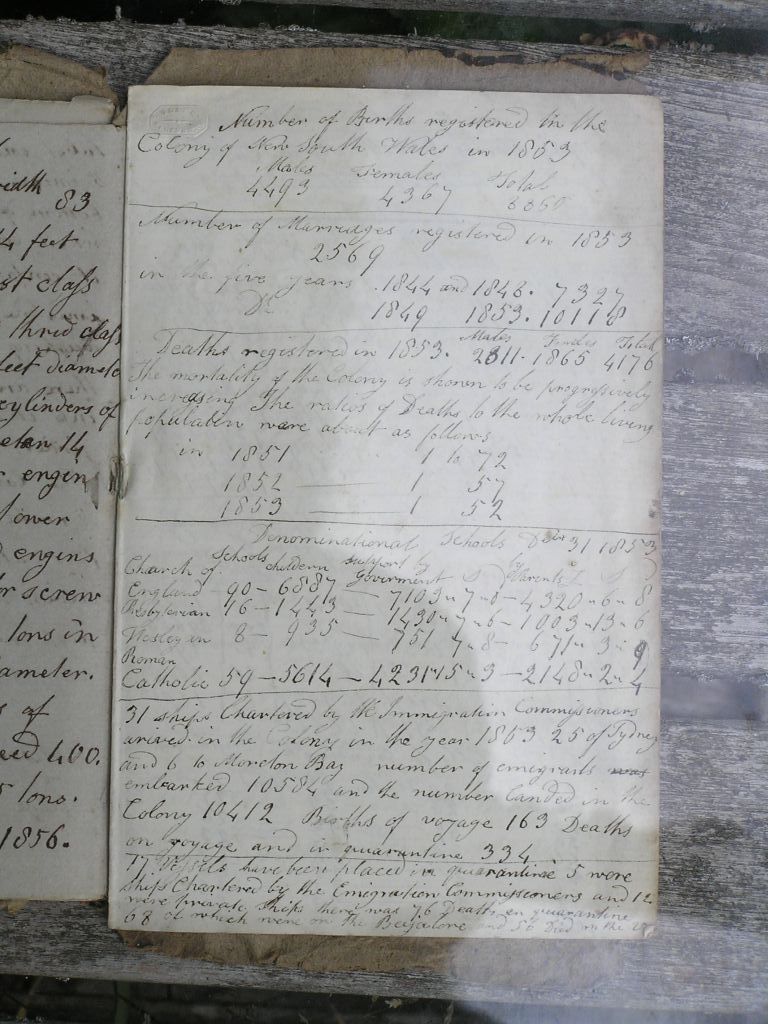 83
feet
class
thrid class
feet
cylinders of
14
engin
engins
or screw
tons in
of
400.
tons.
1856.
Number of Births registered in the
Colony of New South Wales in 1853
Males Females Total
4493 4367 8860
Number of Marridges registered in 1853
2569
in the five years 1844 and 1848. 7327
Do 1849 1853. 10118
Deaths registered in 1853. Males Females Total
2311. 1865 4176
The mortality of the Colony is shown to be progressively
increasing The ratios of Deaths to the whole living
population were about as follows
in 1851 1 to 72
1852 — 1 57
1853 — 1 52
Denominational Schools Dec 31 1853
Schools childern support by by
Church of Goverment Parents
England 90 – 6887 — 7103 " 7 " 8 – 4320 " 6 " 8
Presbyterian 16 – 1443 — 1430 " 7 " 6 – 1003 " 13 " 6
Wesleyin 8 – 935 — 751 " 7 " 8 – 671 " 3 " 9
Roman
Catholic 59 – 5614 – 4231 " 15 " 3 – 2148 " 2 " 4
31 ships Chartered by the Immigration Commissioners
arrived in the Colony in the year 1853 25 of Sydney
and 6 to Moreton Bay number of emigrants was
embarked 10584 and the number Landed in the
Colony 10412 Births of voyage 163 Deaths
on voyage and in quarantine 334
17 Vessels have been placed in quarantine 5 were
ships Chartered by the Emigration Commissioners and 12
were private ships there was 76 Deaths in quarantine
68 of which were on the and 56 Died in the